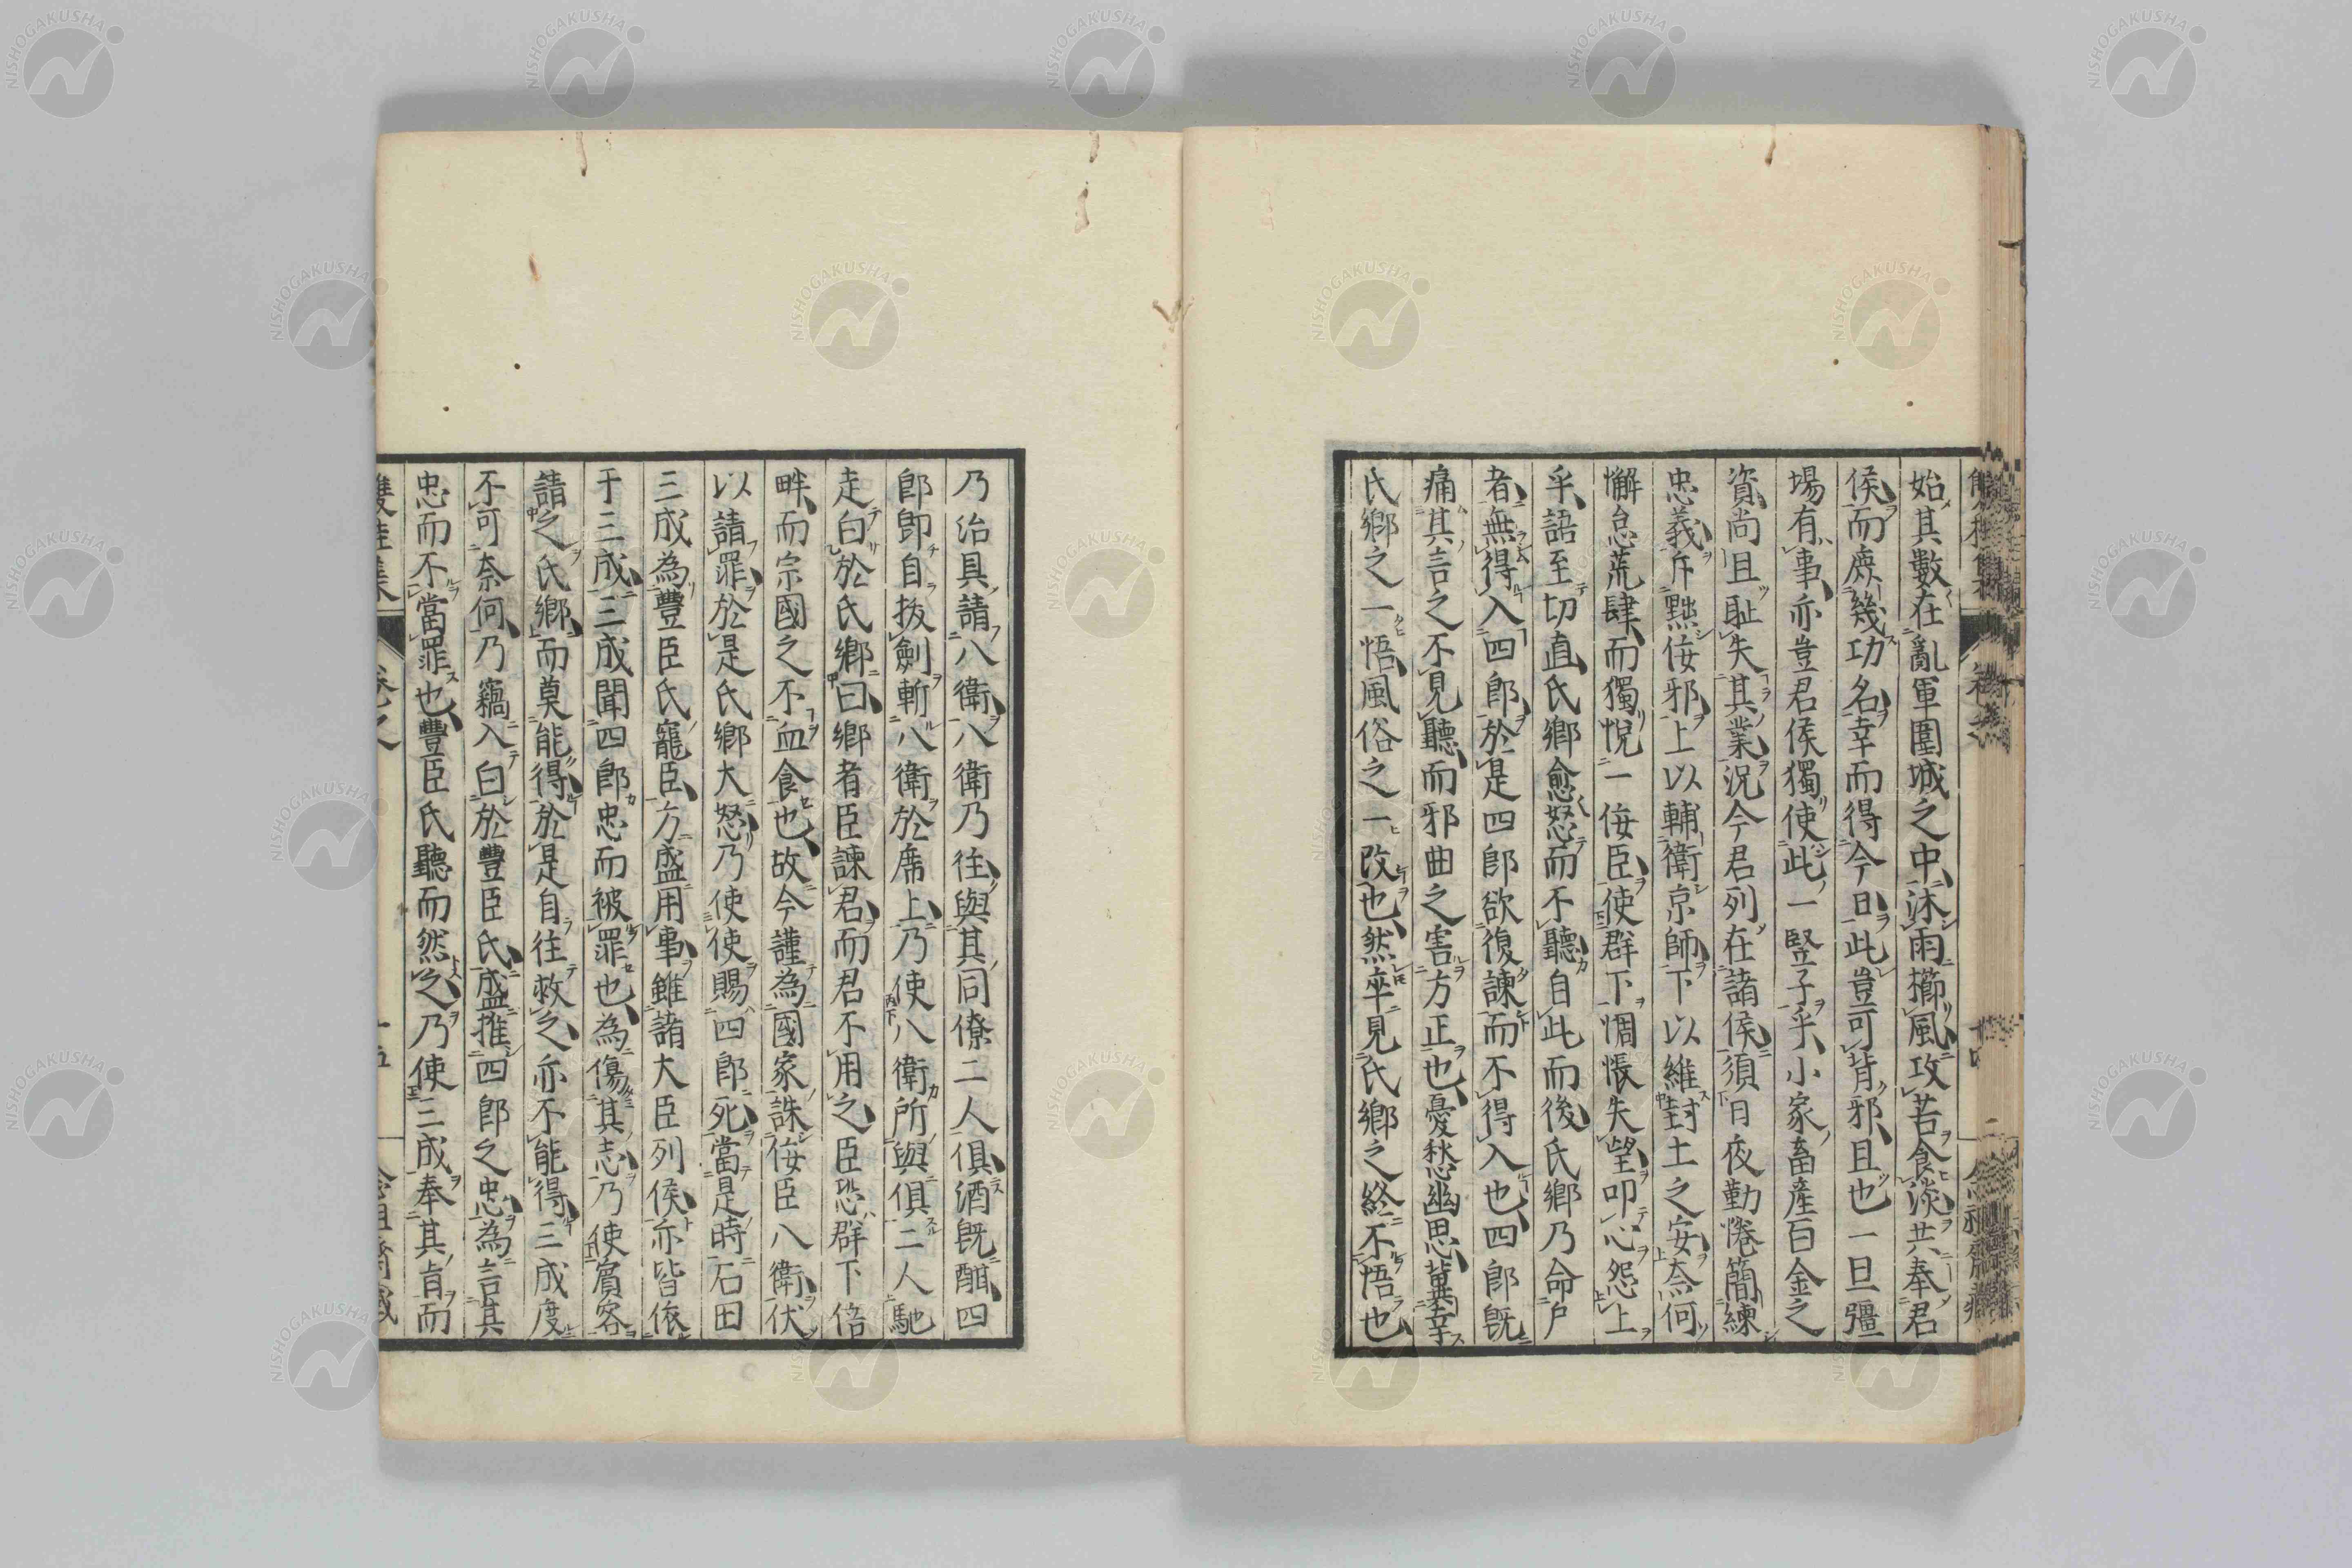 始其數在亂軍圍城之中沐雨櫛風攻苦食淡共奉君
侯而庶幾功名幸而得今日此豈可背邪且也一旦彊
場有事亦豈君侯獨使此一豎子乎小家畜產百金之
資尚且恥失其業況今君列在諸侯須日夜勤惓簡練
忠義斥黜侫邪上以輔衛京師下以維封土之安奈何
懈怠荒肆而獨悅一侫臣使群下惆悵失望叩心怨上
乎語至切直氏鄉愈怒而不聽自此而後氏鄉乃命戶
者無得入四郎於是四郎欲復諫而不得入也四郎既
痛其言之不見聽而邪曲之害方正也憂愁幽思冀幸
氏鄉之一悟風俗之一改也然卒見氏鄉之終不悟也
乃治具請八衛八衛乃往與其同僚二人俱酒既酣四
郎卽自拔劍斬八衛於席上乃使八衛所與俱二人馳
走白於氏鄉曰鄉者臣諫君而君不用之臣恐群下倍
畔而宗國之不血食也故今謹為國家誅侫臣八衛伏
以請罪於是氏鄉大怒乃使使賜四郎死當是時石田
三成為豐臣氏寵臣方盛用事雖諸大臣列侯亦皆依
于三成三成聞四郎忠而被罪也為傷其志乃使賓客
請之氏鄉而莫能得於是自往救之亦不能得三成度
不可奈何乃竊入白於豐臣氏盛推四郎之忠為言其
忠而不當罪也豐臣氏聽而然之乃使三成奉其旨而
雙桂集
十五
NISHOGAKUSHA